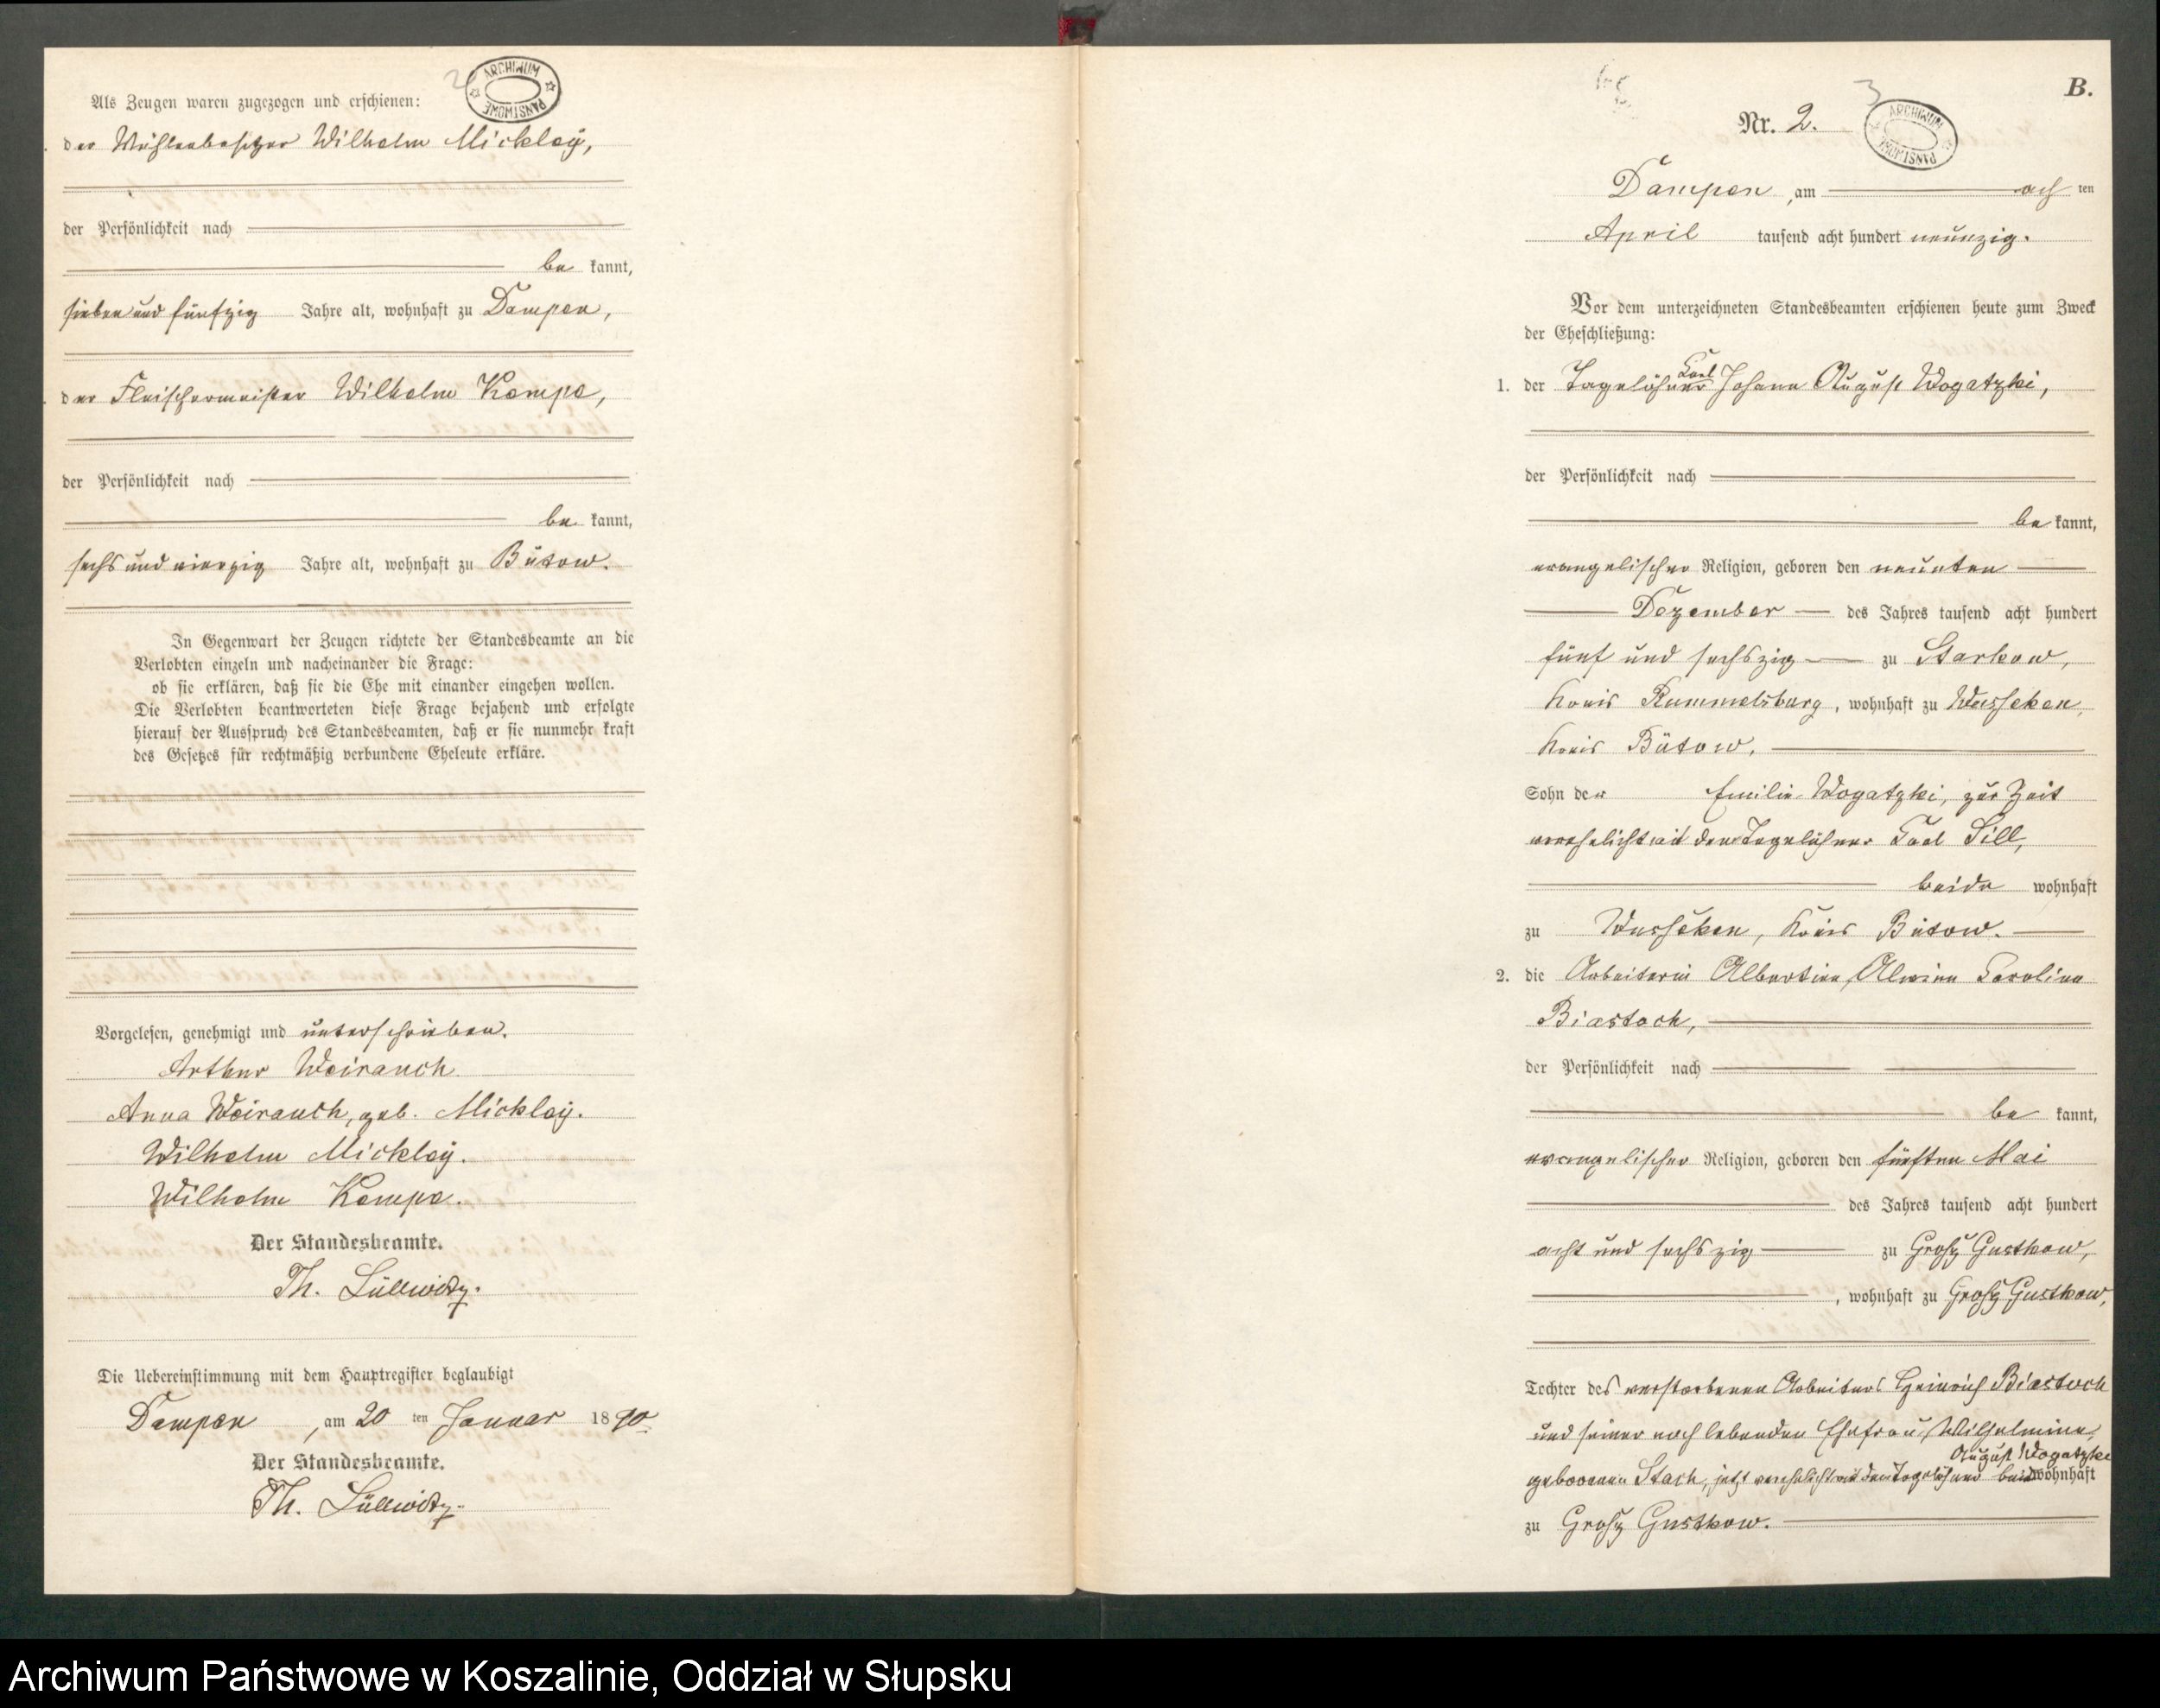 Als Zeugen waren zugezogen und erschienen:
ARCHIWUM PAŃSTWOWE
der Mühlenbesitzer Wilhelm Mickley,
der Persönlichkeit nach
be kannt,
sieben und fünfzig Jahre alt, wohnhaft zu Dampen,
der Fleischermeister Wilhelm Kempe,
der Persönlichkeit nach
be kannt,
sechs und vierzig Jahre alt, wohnhaft zu Bütow.
In Gegenwart der Zeugen richtete der Standesbeamte an die
Verlobten einzeln und nacheinander die Frage:
ob sie erklären, daß sie die Ehe mit einander eingehen wollen.
Die Verlobten beantworteten diese Frage bejahend und erfolgte
hierauf der Ausspruch des Standesbeamten, daß er sie nunmehr kraft
des Gesetzes für rechtmäßig verbundene Eheleute erkläre.
Vorgelesen, genehmigt und unterschrieben.
Arthur Weirauch
Anna Weirauch, geb. Mickley.
Wilhelm Mickley.
Wilhelm Kempe.
Der Standesbeamte.
Th. Lüllwitz.
Die Uebereinstimmung mit dem Hauptregister beglaubigt
Dampen, am 20 ten Januar 1890.
Der Standesbeamte.
Th. Lüllwitz.
B.
3
Nr. 2.
ARCHIWUM PAŃSTWOWE
Dampen, am ach ten
April tausend acht hundert neunzig.
Vor dem unterzeichneten Standesbeamten erschienen heute zum Zweck
der Eheschließung:
1. der Tagelöhner Carl Johann August Wogatzki,
der Persönlichkeit nach
be kannt,
evangelischer Religion, geboren den neunten
Dezember des Jahres tausend acht hundert
fünf und sechszig zu Starkow,
Kreis Rummelsburg, wohnhaft zu Wusseken,
Kreis Bütow.
Sohn der Emilie Wogatzki, zur Zeit
verehelicht mit dem Tagelöhner Carl Sill,
beide wohnhaft
zu Wusseken, Kreis Bütow.
2. die Arbeiterin Albertine, Alwine Caroline
Biastoch,
der Persönlichkeit nach
be kannt,
evangelischer Religion, geboren den fünften Mai
des Jahres tausend acht hundert
acht und sechszig zu Groß Gustkow,
, wohnhaft zu Groß Gustkow,
Tochter des verstorbenen Arbeiters Heinrich Biastoch
und seiner noch lebenden Ehefrau, Wilhelmine,
geborenen Stach, jetzt verehelicht mit dem Tagelöhner August Wogatzke beide wohnhaft
zu Groß Gustkow.
Archiwum Państwowe w Koszalinie, Oddział w Słupsku